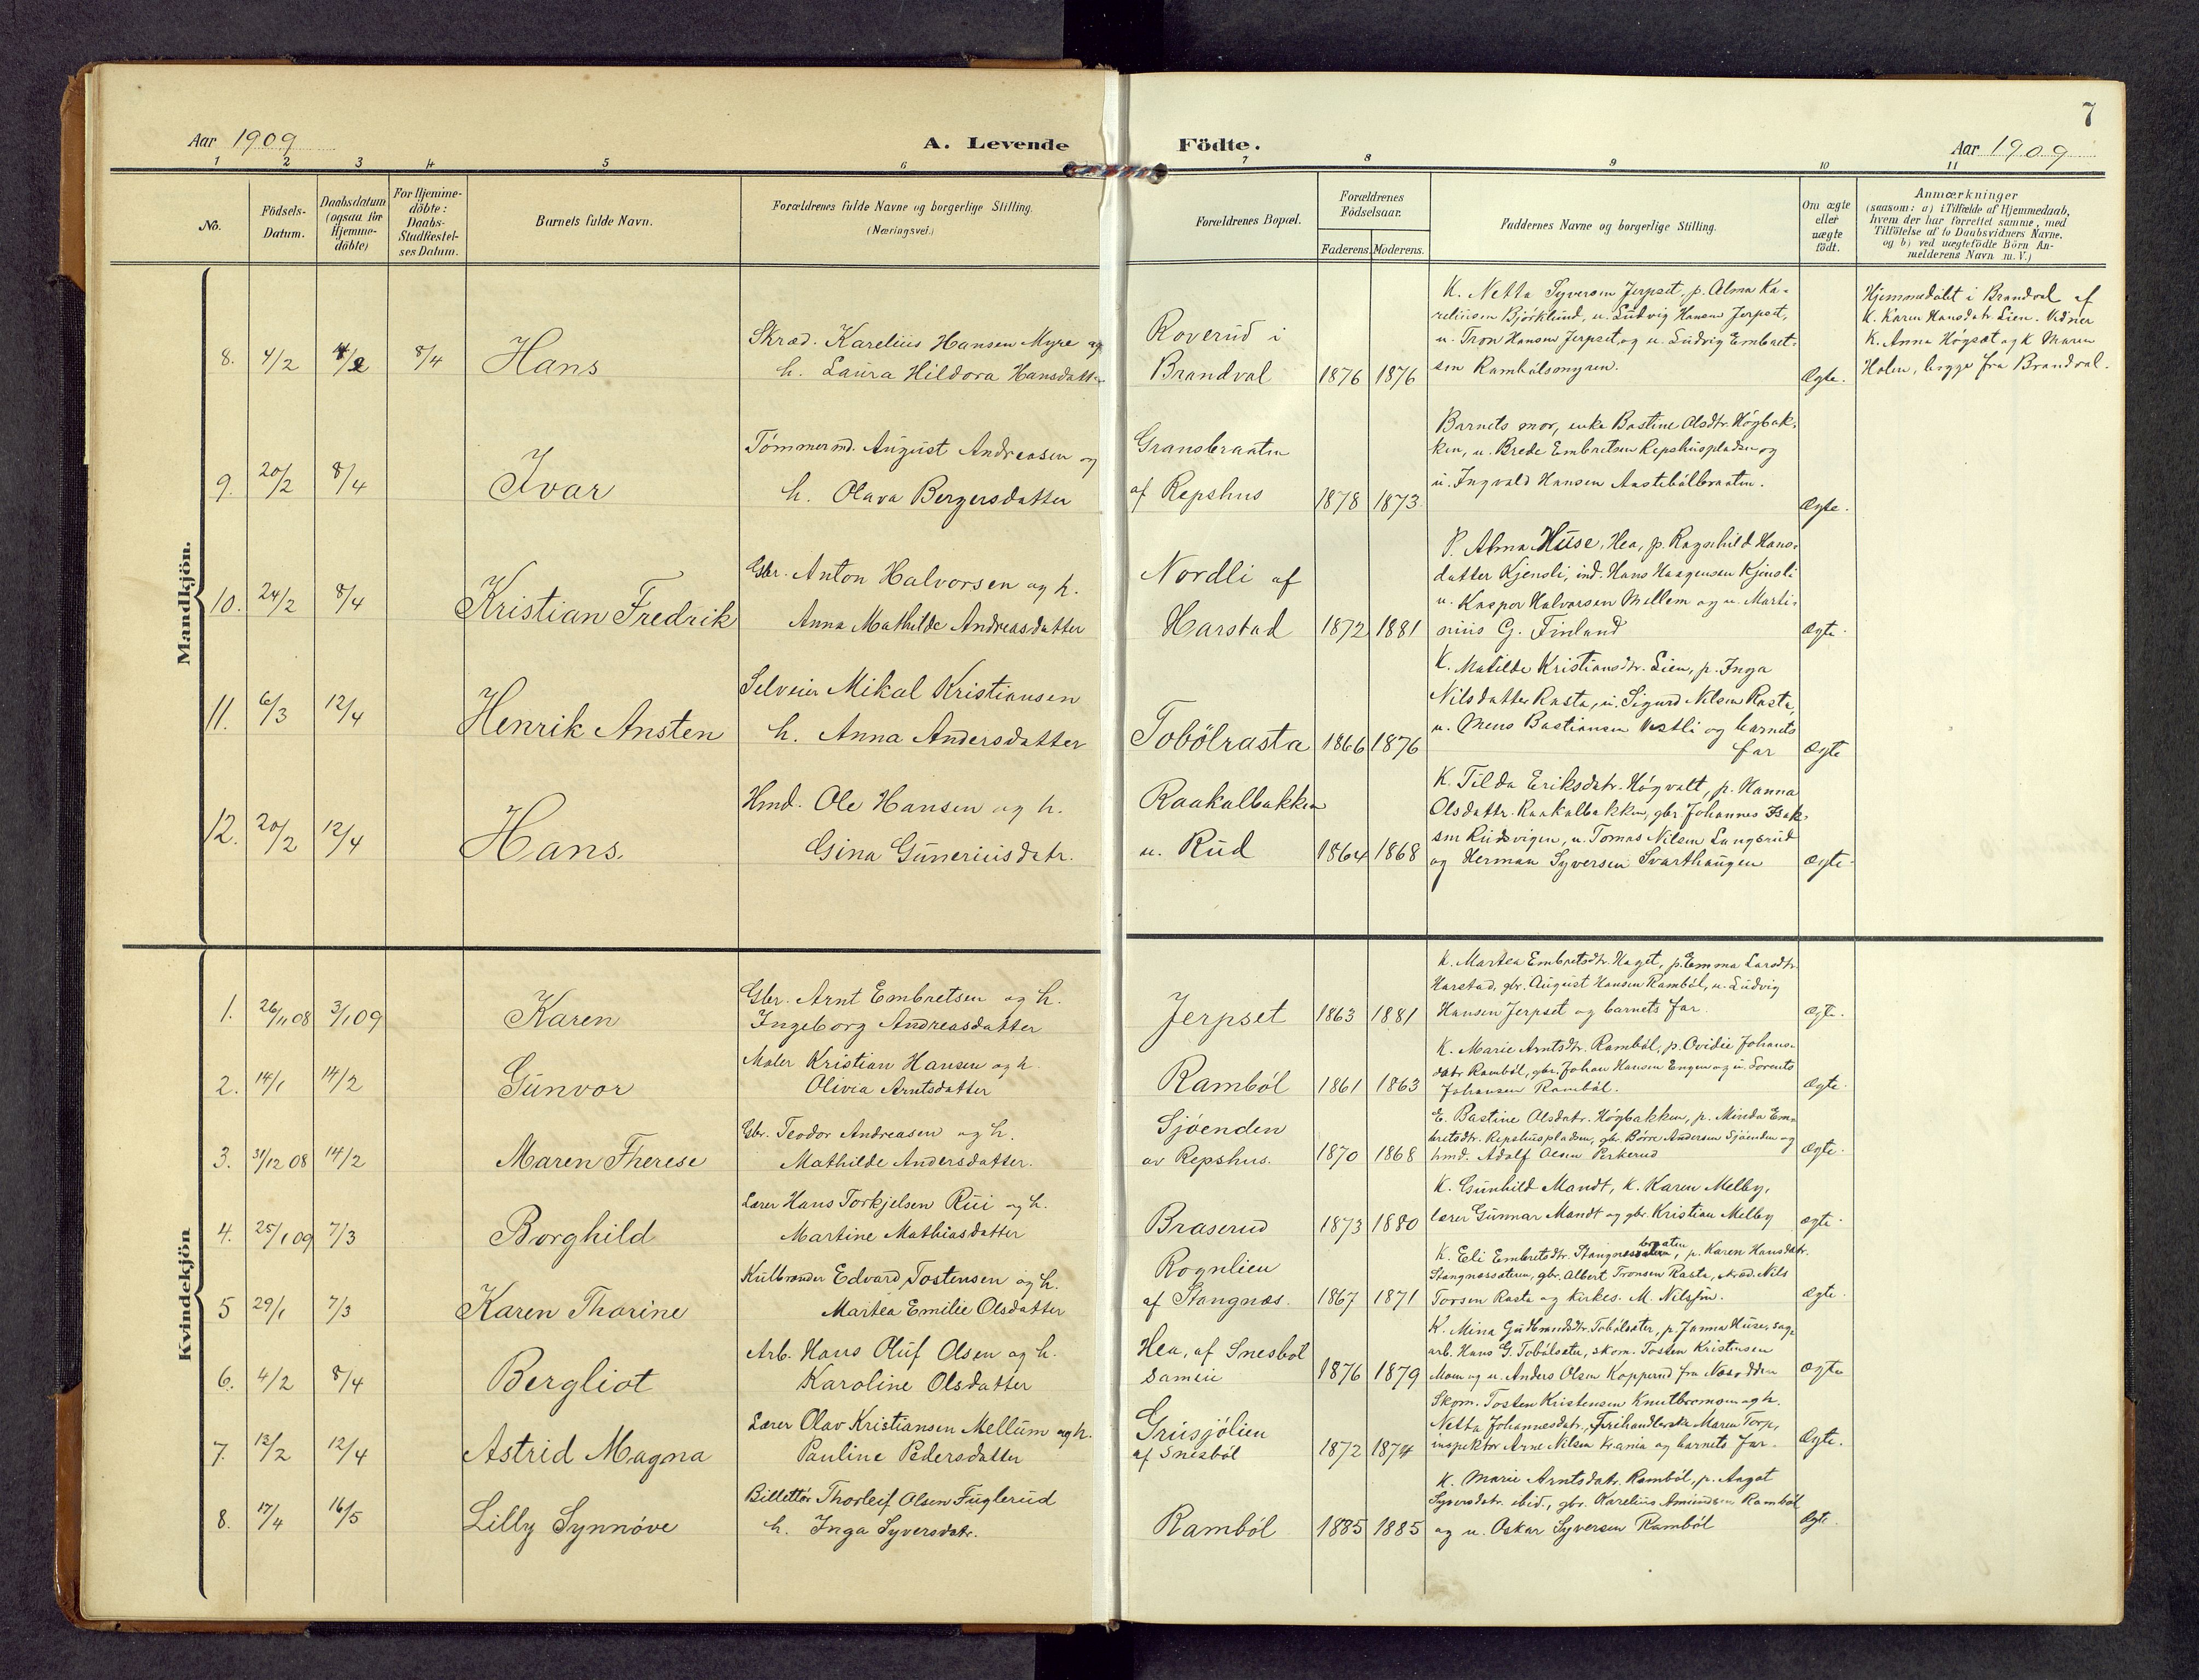 7
Aar 1909
A. Levende
Födte.
Aar 1909
1 2 3 4 5 6 7 8 9 10 11
No.
Födsels-
Datum.
Daabsdatum
(ogsaa for
Hjemme-
döbte)
For Hjemme-
döbte:
Daabs-
Stadfæstel-
ses Datum.
Barnets fulde Navn.
Forældrenes fulde Navne og borgerlige Stilling.
(Næringsvei.)
Forældrenes Bopæl.
Forældrenes
Födselsaar.
Faderens. Moderens.
Faddernes Navne og borgerlige Stilling.
Om ægte
eller
uægte
födt.
Anmærkninger
(saasom: a) i Tilfælde af Hjemmedaab,
hvem der har forrettet samme, med
Tilföielse af to Daabsvidners Navne.
og b) ved uægtefödte Börn An-
melderens Navn m. V.)
Mandkjön.
8. 4/2 4/2 8/4 Hans
Skræd. Karelius Hansen Myre og
h. Laura Hildora Hansdatter
Roverud i
Brandval
1876 1876
K. Netta Syversen Jerpset, p. Alma Ka-
reliusen Björklund, u. Ludvig Hansen Jerpset,
u. Tron Hansen Jerpset og u. Ludvig Embret-
sen Rambölsmyren.
Ægte.
Hjemmedöbt i Brandval af
K. Karen Hansdatr. Lien. Vidner
K. Anna Högsæt og K Maren
Holen, begge fra Brandval.
9. 20/2 8/4 Ivar
Tömmermd. August Andreasen og
h. Olava Bergersdatter
Gransbraaten
af Repshus
1878 1873
Barnets mor, enke Bastine Olsdtr. Högbak-
ken, u. Brede Embretsen Repshuspladsen og
u. Ingvald Hansen Aastebölbraaten.
Ægte.
10. 24/2 8/4 Kristian Fredrik
Gbr. Anton Halvorsen og h.
Anna Mathilde Andreasdatter
Nordli af
Harstad
1872 1881
P. Alma Huse, Hea, p. Ragnhild Hans-
datter Kjensli, ind. Hans Haagensen Kjensli
u. Kaspor Halvorsen Mellem og u. Marti-
nius G. Finland
Ægte.
11. 6/3 12/4 Henrik Ansten
Selveier Mikal Kristiansen
h. Anna Andersdatter
Tobölrasta
1866 1876
K. Matilde Kristiansdtr. Lien, p. Inga
Nilsdatter Rasta, u. Sigurd Nilsen Rasta,
u. Mens Bastiansen Vestli og barnets
far
Ægte
12. 20/2 12/4 Hans.
Hmd. Ole Hansen og h.
Gina Guneriusdatr.
Raakalbakken
u. Rud
1864 1868
K. Tilda Eriksdatr. Högvalt, p. Hanna
Olsdattr. Raakalbakken, gbr. Johannes Isak-
sen Rudsvigen, u. Tomas Nilsen Langsrud
og Herman Syversen Svarthaugen
Ægte.
Kvindekjön
1. 26/11 08 3/1 09 Karen
Gbr. Arnt Embretsen og h.
Ingeborg Andreasdatter
Jerpset
1863 1881
K. Martea Embretsdtr. Haget, p. Emma Larsdtr.
Harstad, gbr. August Hansen Ramböl, u. Ludvig
Hansen Jerpset og barnets far.
Ægte.
2. 14/1 14/2 Gunvor
Maler Kristian Hansen og h.
Olivia Arntsdatter
Ramböl
1861 1863
K. Marie Arntsdtr. Ramböl, p. Ovidie Johans-
datr. Ramböl, gbr. Johan Hansen Engen og u. Lorents
Johansen Ramböl.
Ægte.
3. 31/12 08 14/2 Maren Therese
Gbr. Teodor Andreasen og h.
Mathilde Andersdatter.
Sjöenden
av Repshus.
1870 1868
E. Bastine Olsdatr. Högbakken, p. Minda Em-
bretsdtr. Repshuspladsen, gbr. Börre Andersen Sjöenden og
hmd. Adolf Olsen Perkerud
Ægte.
4. 25/1 09 7/3 Borghild
Lærer Hans Torkjelsen Rui og h.
Martine Mathiasdatter
Braserud
1873 1880
K. Gunhild Mandt, K. Karen Melby,
lærer Gunnar Mandt og gbr. Kristian Melby
Ægte.
5 29/1 7/3 Karen Thorine
Kulbrænder Edvard Tostensen og h.
Martea Emilie Olsdatter
Rognlien
af Stangnæs.
1867 1871
K. Eli Embretsdtr. Stangnæsbraaten, p. Karen Hansdatr.
Stangnæssæteren, gbr. Albert Tronsen Rasta, skræd. Nils
Torsen Rasta og kirkes. M. Nilssen.
Ægte.
6. 4/2 8/4 Bergliot
Arb. Hans Oluf Olsen og h.
Karoline Olsdatter
Hea, af Snesböl
1876 1879
K. Mina Gudbrandsdtr. Tobölsæter, p. Janna Huse, sag-
arb. Hans G. Tobölsæter, skom. Tosten Kristensen
Moen og u. Anders Olsen Kopperud fra Næsodden
Ægte
7. 12/2 12/4 Astrid Magna
Lærer Olav Kristiansen Mellum og h.
Pauline Pedersdatter
Grusjölien
af Snesböl
1872 1874
Skom. Tosten Kristensen Knutbromoen og h.
Netta Johannesdatr., Frihandlerske Maren Torp,
inspektör Arne Nilsen Krania og barnets far.
Ægte.
8. 17/4 16/5 Lilly Synnöve
Billettör Thorleif Olsen Fuglerud
h. Inga Syversdatr.
Ramböl
1885 1885
K. Marie Arntsdatr. Ramböl, p. Aagot
Syversdatr. ibid., gbr. Karelius Amundsen Ramböl
og u. Oskar Syversen Ramböl
Ægte.